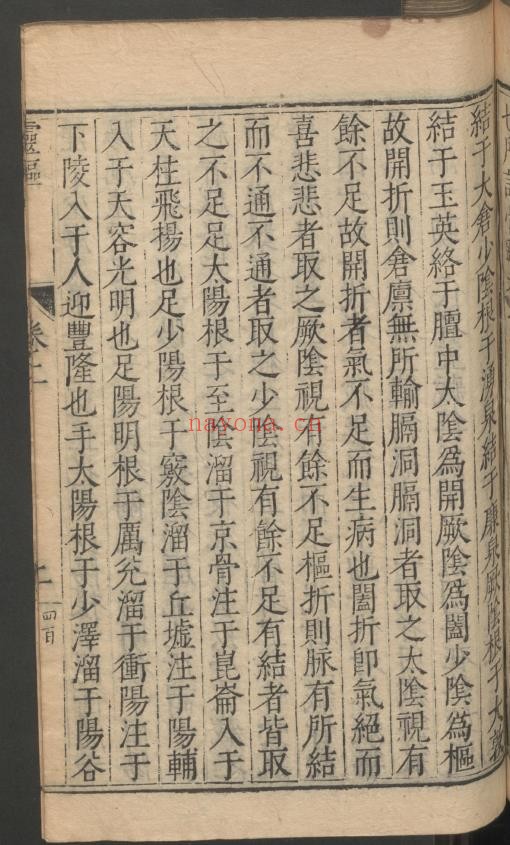 結于大倉少陰根于湧泉結于廉泉厥陰根于大敦
結于玉英絡于膻中太陰為開厥陰為闔少陰為樞
故開折則倉廪無所輸膈洞膈洞者取之太陰視有
餘不足故開折者氣不足而生病也闔折卽氣絕而
喜悲悲者取之厥陰視有餘不足樞折則脉有所結
而不通不通者取之少陰視有餘不足有結者皆取
之不足足大陽根于至陰溜于京骨注于崑崙入于
天柱飛揚也足少陽根于竅陰溜于丘墟注于陽輔
入于天容光明也足陽明根于厲兊溜于衝陽注于
下陵入于人迎豐隆也手太陽根于少澤溜于陽谷
靈樞
卷二
nayona.cn